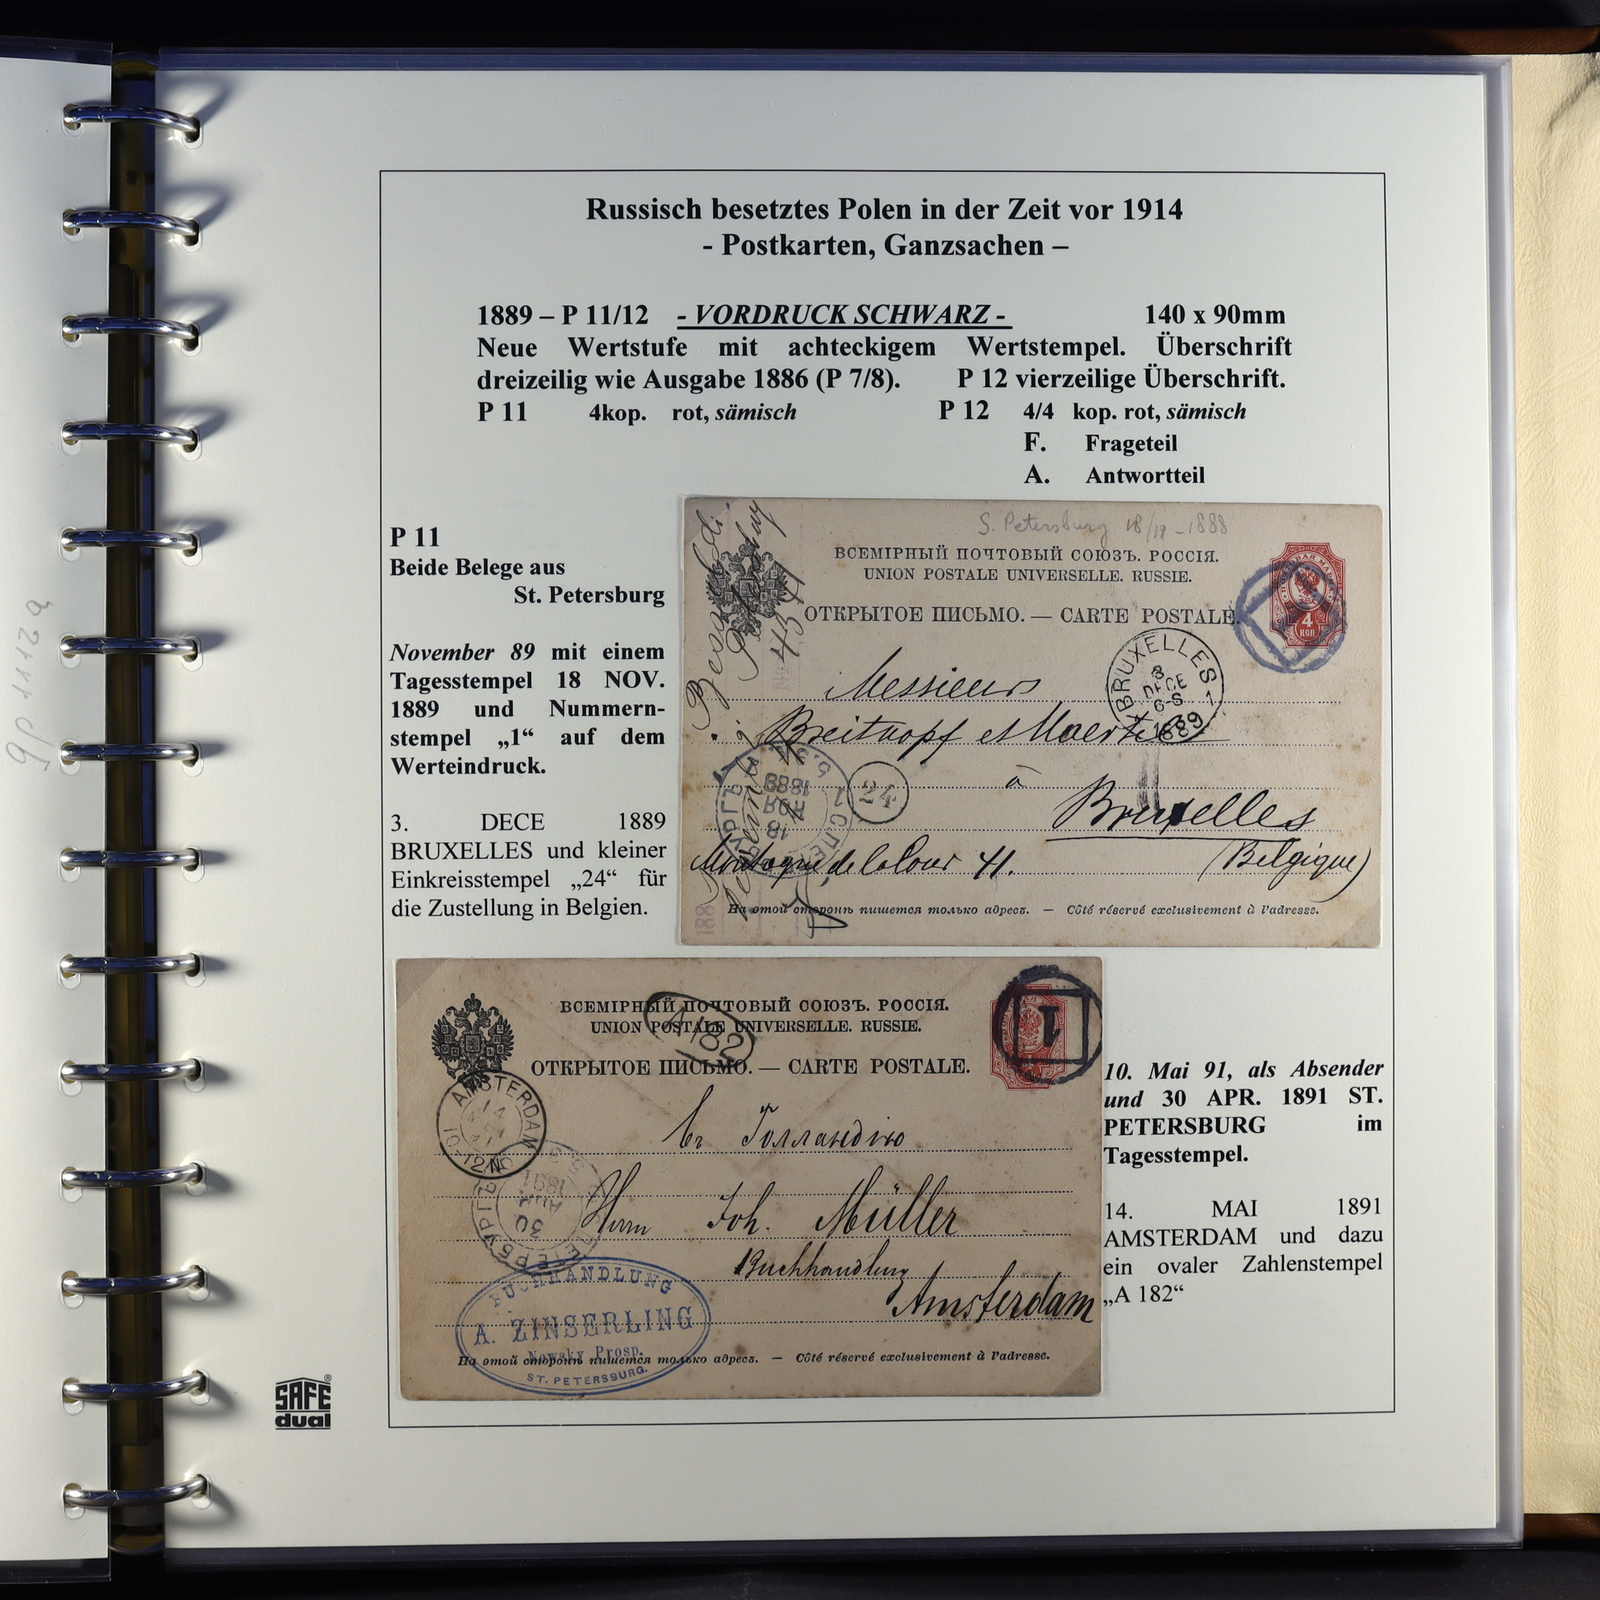 Russisch besetztes Polen in der Zeit vor 1914
- Postkarten, Ganzsachen –
1889 – P 11/12 - VORDRUCK SCHWARZ - 140 x 90mm
Neue Wertstufe mit achteckigem Wertstempel. Überschrift
dreizeilig wie Ausgabe 1886 (P 7/8). P 12 vierzeilige Überschrift.
P 11 4kop. rot, sämisch P 12 4/4 kop. rot, sämisch
F. Frageteil
A. Antwortteil
P 11
Beide Belege aus
St. Petersburg
November 89 mit einem
Tagesstempel 18 NOV.
1889 und Nummern-
stempel „1“ auf dem
Werteindruck.
3. DECE 1889
BRUXELLES und kleiner
Einkreisstempel „24“ für
die Zustellung in Belgien.
S. Petersburg 18/11-1888
ВСЕМІРНЫЙ ПОЧТОВЫЙ СОЮЗЪ. РОССІЯ.
UNION POSTALE UNIVERSELLE. RUSSIE.
ОТКРЫТОЕ ПИСЬМО. — CARTE POSTALE.
4
КОП
BRUXELLES 1
3
DECE
6-S
1889
Messieurs
Breitkopf et Maertel
à
Bruxelles
(Belgique)
Montagne de la Cour 41.
24
18
НОЯ
1889
188
На этой сторонѣ пишется только адресъ. — Côté réservé exclusivement à l'adresse.
ВСЕМІРНЫЙ ПОЧТОВЫЙ СОЮЗЪ. РОССІЯ.
UNION POSTALE UNIVERSELLE. RUSSIE.
ОТКРЫТОЕ ПИСЬМО. — CARTE POSTALE.
A 182
1
AMSTERDAM
14
10-12N
30
1891
Въ Голландію
Herrn Joh. Müller
Buchhandlung
Amsterdam
BUCHHANDLUNG
A. ZINSERLING
Newsky Prosp.
ST. PETERSBURG.
На этой сторонѣ пишется только адресъ. — Côté réservé exclusivement à l'adresse.
10. Mai 91, als Absender
und 30 APR. 1891 ST.
PETERSBURG im
Tagesstempel.
14. MAI 1891
AMSTERDAM und dazu
ein ovaler Zahlenstempel
„A 182“
SAFE®
dual